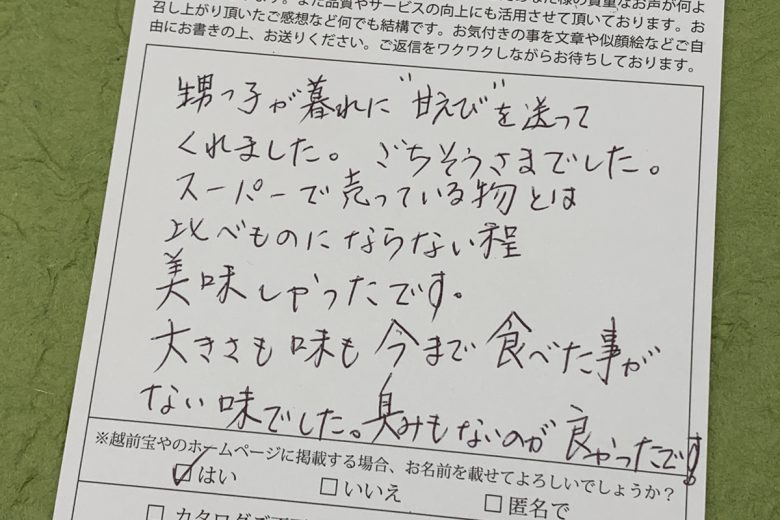 また品質やサービスの向上にも活用させて頂いております。お
召し上がり頂いたご感想など何でも結構です。お気付きの事を文章や似顔絵などご自
由にお書きの上、お送りください。ご返信をワクワクしながらお待ちしております。
甥っ子が暮れに"甘えび"を送って
くれました。ごちそうさまでした。
スーパーで売っている物とは
比べものにならない程
美味しかったです。
大きさも味も今まで食べた事が
ない味でした。臭みもないのが良かったです!
※越前宝やのホームページに掲載する場合、お名前を載せてよろしいでしょうか?
☑はい □いいえ □匿名で